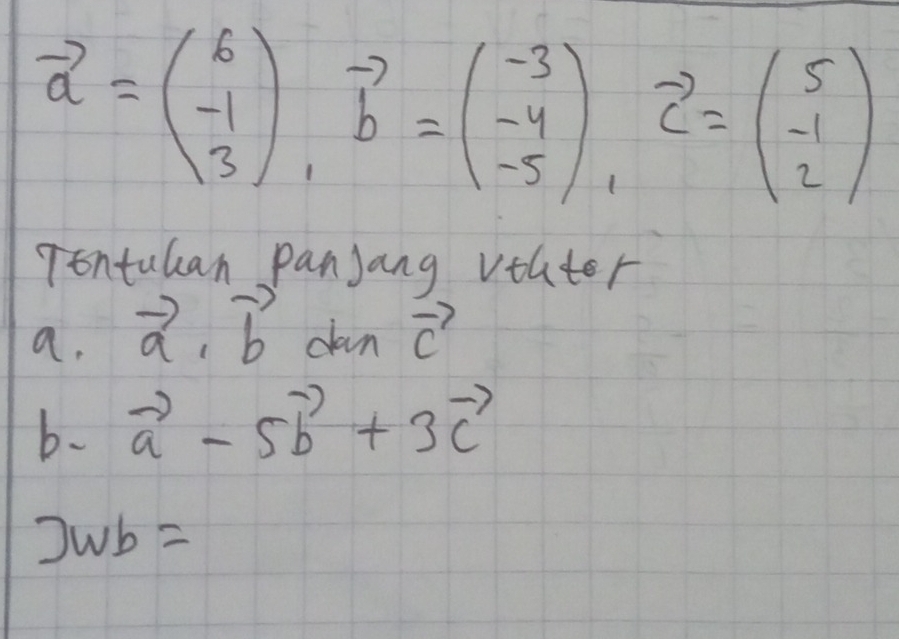 a⃗ = (6 -1 3), b⃗ = (-3 -4 -5), c⃗ = (5 -1 2)
Tentukan panjang vektor
a. a⃗, b⃗ dan c⃗
b- a⃗ - 5b⃗ + 3c⃗
Jwb =